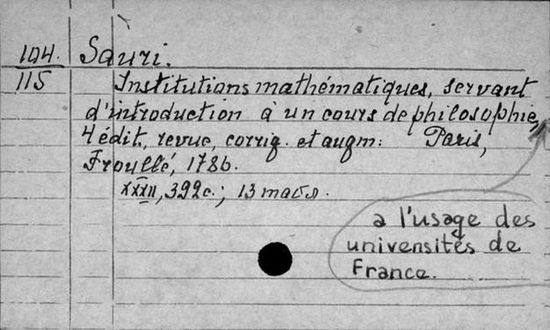 104. Sauri.
115 Institutions mathématiques, servant
d'introduction à un cours de philosophie,
4 édit, revue, corrig. et augm: Paris,
Froullé, 1786.
XXXII, 392c.; 13 табл.
a l'usage des
universités de
France.